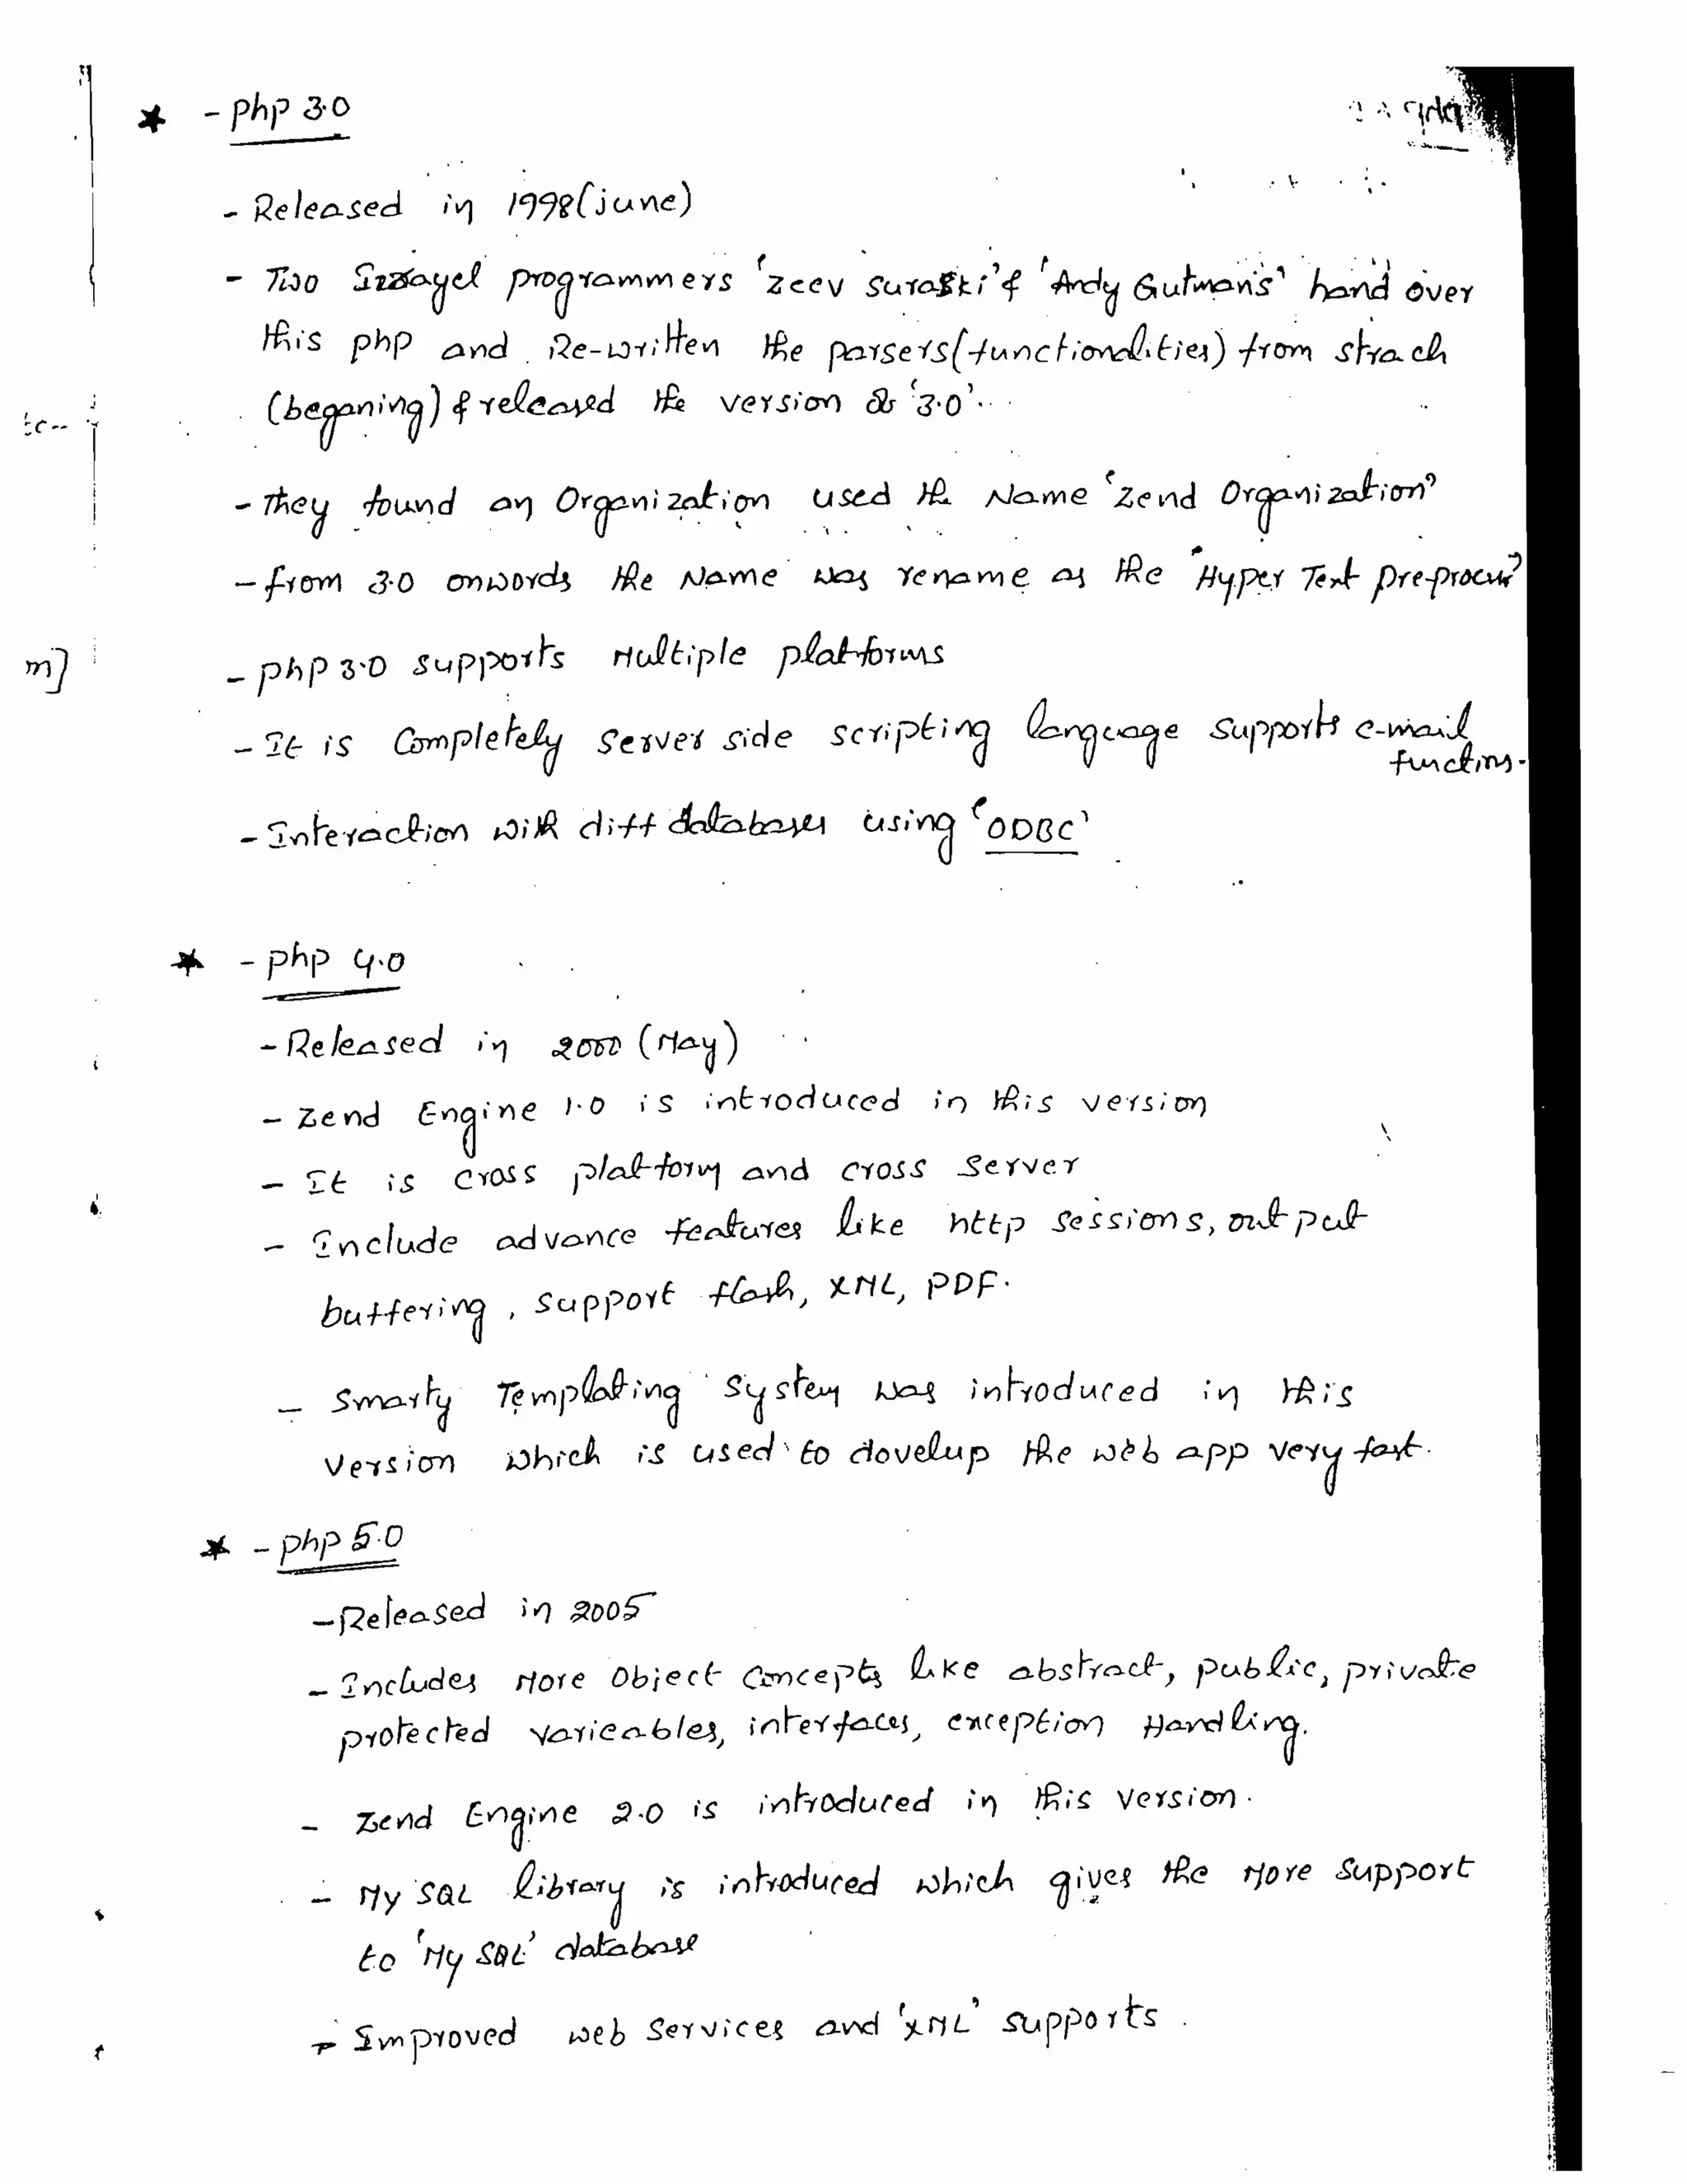 * - php 3.0
- Released in 1998(june)
- Two Izrayel programmers 'zeev suraski' & 'Andy Gutman's' hand over
this php and Re-written the parsers(functionalities) from strach
(beganing) & released the version as '3.0'.
- They found an Organization used the Name 'Zend Organization'
- from 3.0 onwords the Name was rename as the 'Hyper Text pre-processor'
- php 3.0 supports Multiple platforms
- It is Completely server side scripting language supports e-mail
functions.
- Interaction with diff databases using 'ODBC'
m]
* - php 4.0
- Released in 2000 (May)
- Zend Engine 1.0 is introduced in this version
- It is cross platform and cross Server
- Include advance features like http sessions, out put
buffering, support flash, XML, PDF.
- Smarty Templating System was introduced in this
version which is used to dovelup the web app very fast.
* - php 5.0
- Released in 2005
- Includes More Object Concepts like abstract, public, private
protected varieables, interfaces, exception Handling.
- Zend Engine 2.0 is introduced in this version.
- My SQL library is introduced which gives the More support
to 'My SQL' database
- Improved web Services and 'XML' supports.